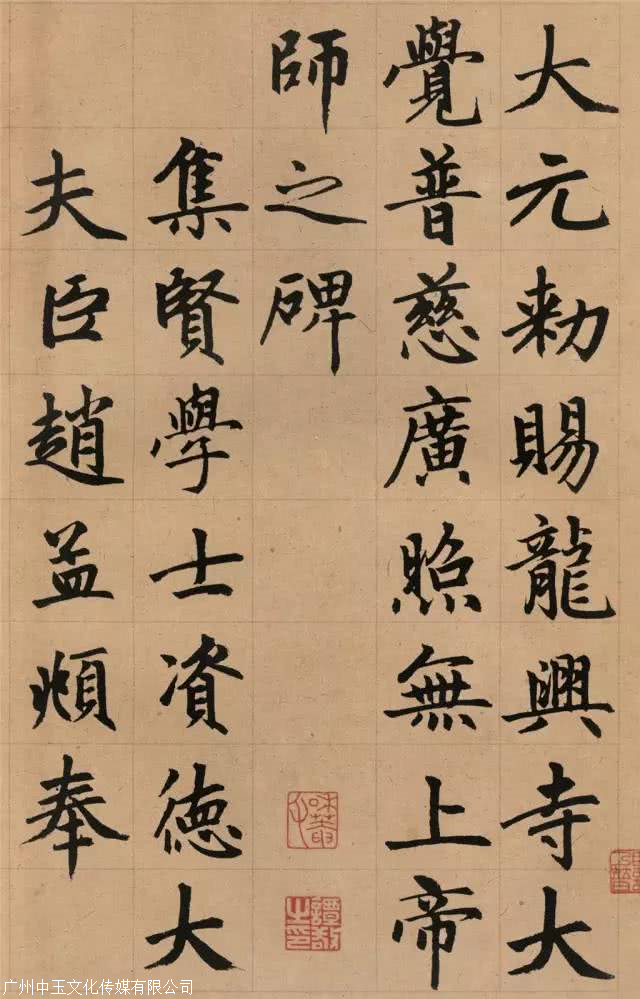 大元勅賜龍興寺大
覺普慈廣照無上帝
師之碑
集賢學士資德大
夫臣趙孟頫奉
譚敬之印
广州中玉文化传媒有限公司